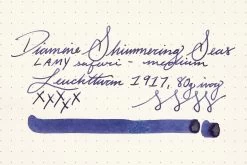 Diamine Shimmering Seas
LAMY safari - medium
Leuchtturm 1917, 80g ivory
xxxx